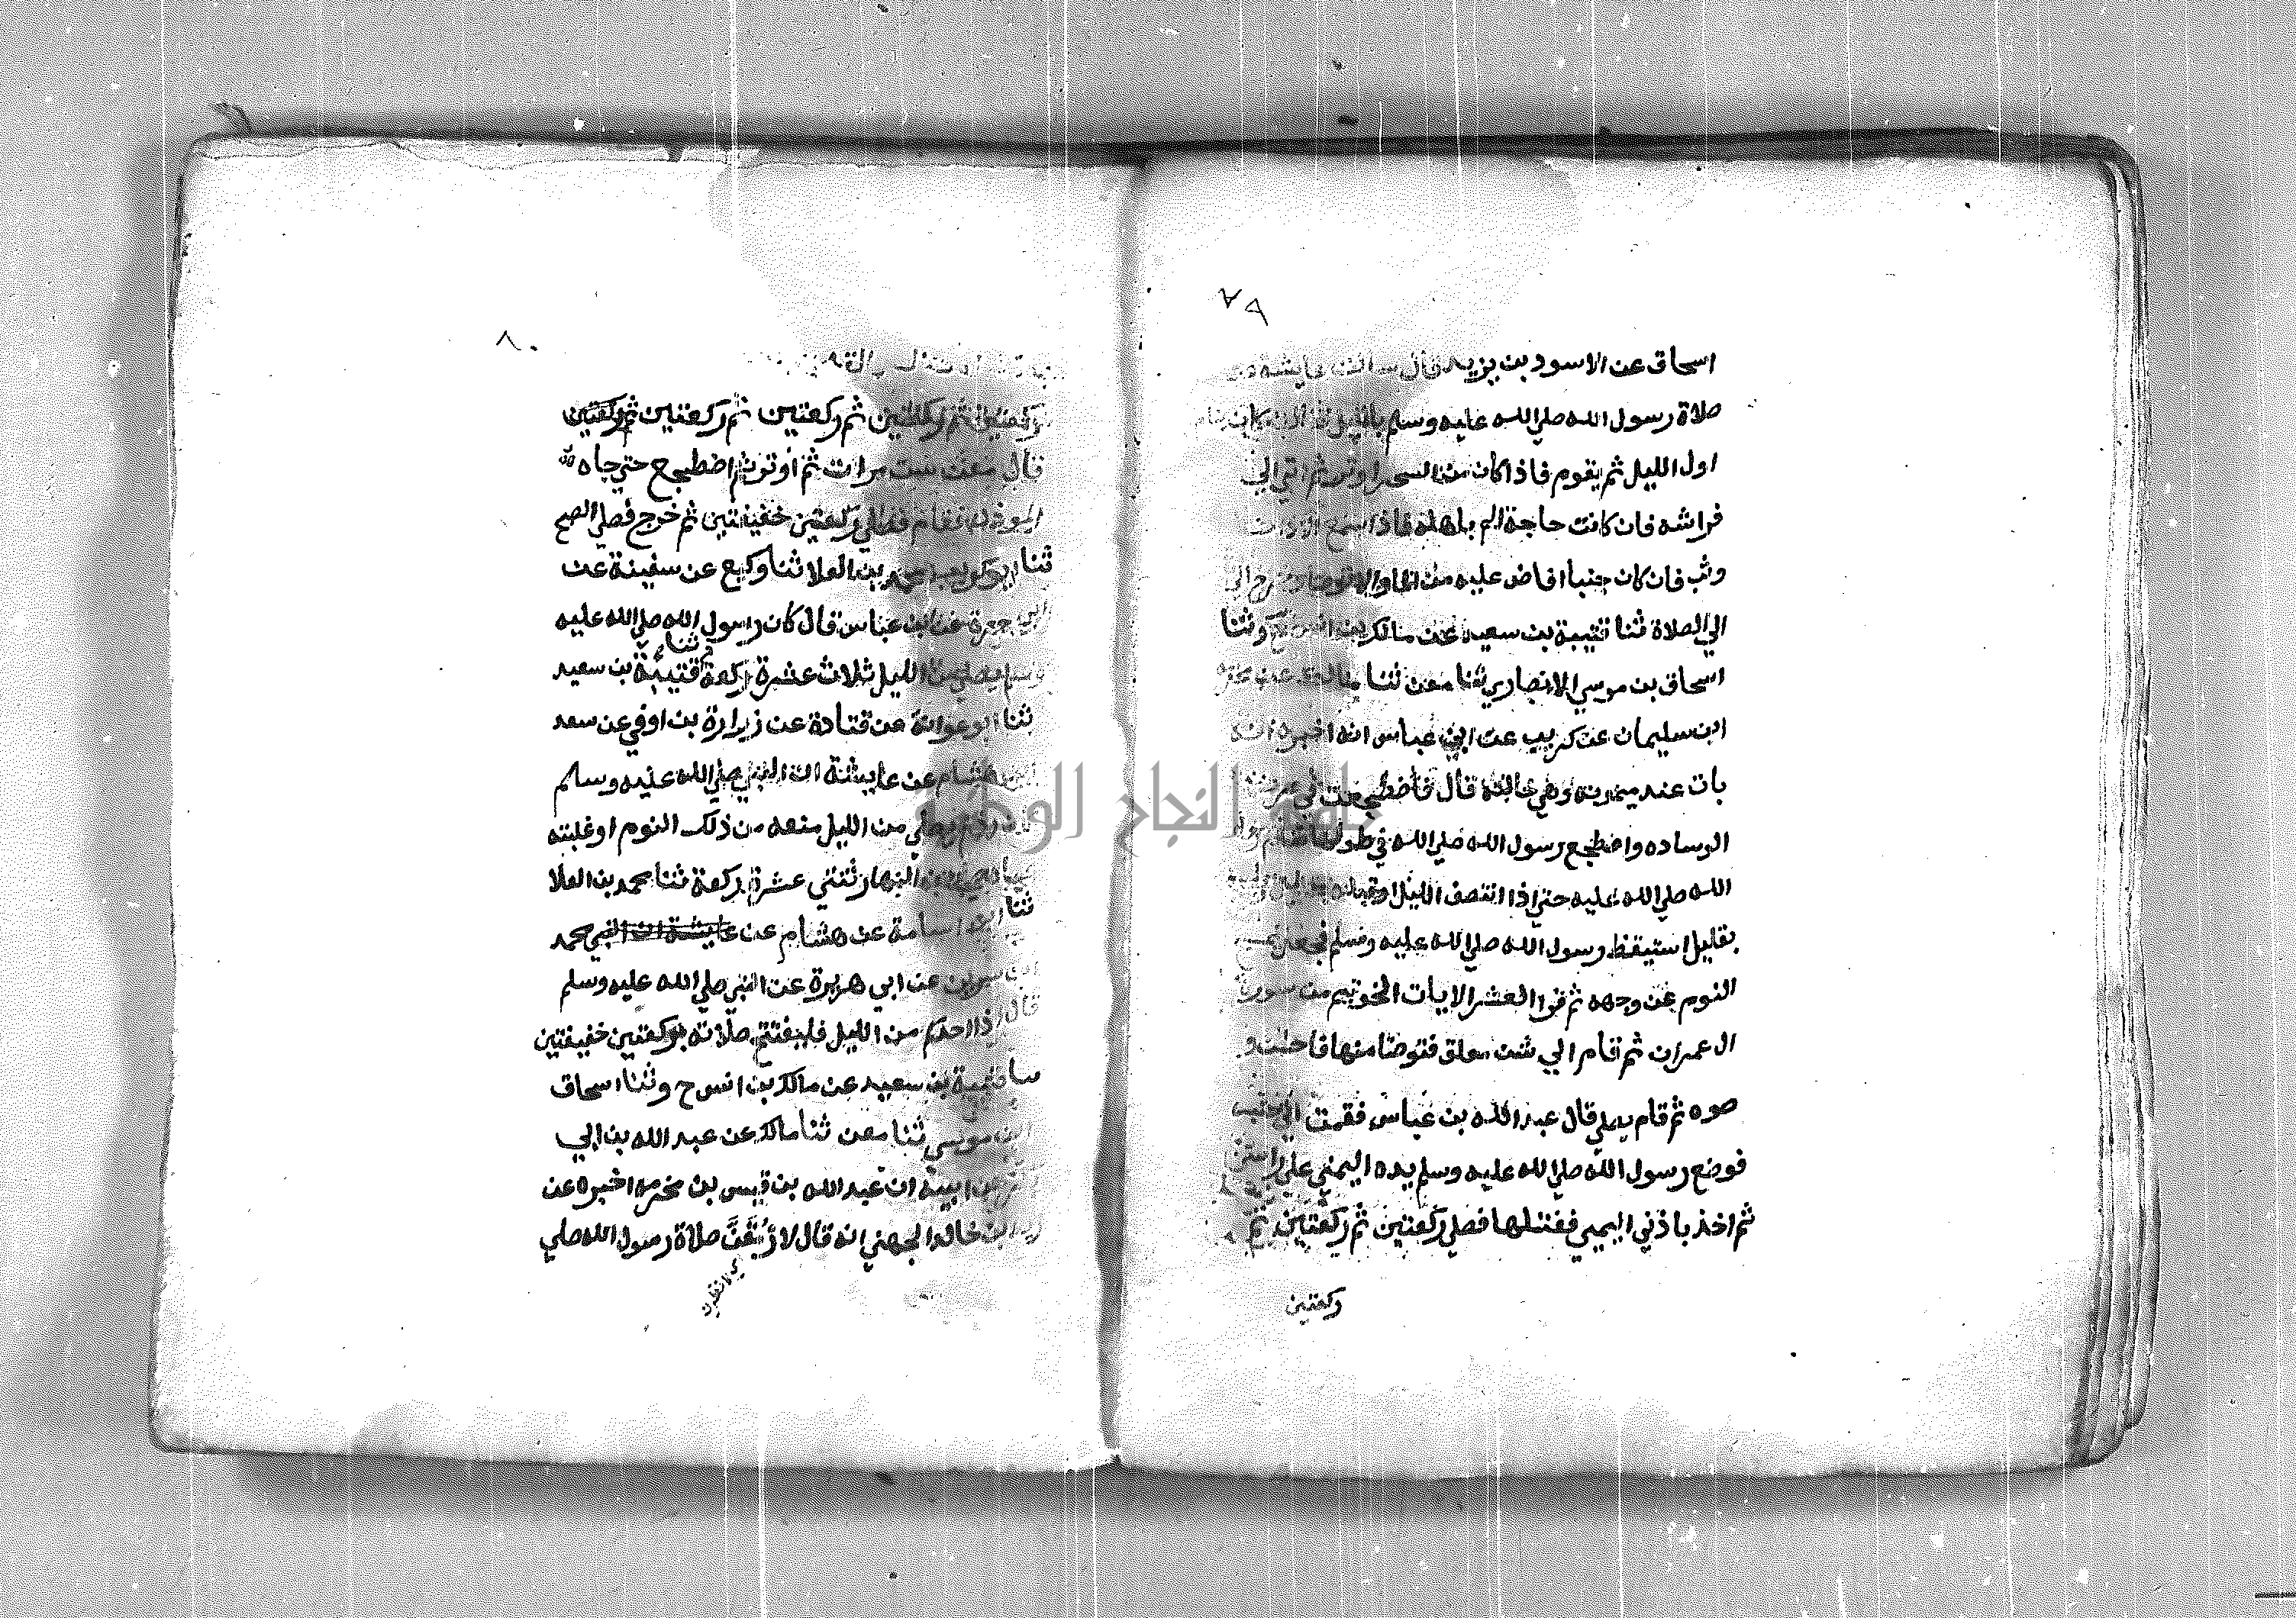 ٧٩
اسحاق عن الاسود بن يزيد قال سالت عايشة عن
صلاة رسول الله صلي الله عليه وسلم بالليل
اول الليل ثم يقوم فاذا كان من السحر اوتر ثم اتي الي
فراشه فان كانت حاجة الم باهله فاذا سمع الاذان
وثب فان كان جنبا افاض عليه من الماء والا توضا وخرج الي
الي الصلاة ثنا قتيبة بن سعيد عن مالك بن انس ح وثنا
اسحاق بن موسي الانصاري ثنا معن ثنا مالك عن مخرمة
ابن سليمان عن كريب عن ابن عباس انه اخبره انه
بات عند ميمونه وهي خالته قال فاضطجعت في عرض
الوساده واضطجع رسول الله صلي الله في طولها فنام
الله صلي الله عليه حتي اذا انتصف الليل او قبله بقليل
بقليل استيقظ رسول الله صلي الله عليه وسلم فجعل يمسح
النوم عن وجهه ثم قرا العشر الايات الخوتيم من سورة
ال عمران ثم قام الي شن معلق فتوضا منها فاحسن و
ضوه ثم قام يصلي قال عبد الله بن عباس فقمت الي جنبه
فوضع رسول الله صلي الله عليه وسلم يده اليمني علي راسي
ثم اخذ باذني اليمني ففتلها فصلي ركعتين ثم ركعتين ثم
ركعتين
٨٠
ركعتين ثم ركعتين ثم ركعتين ثم ركعتين ثم ركعتين
قال معن ست مرات ثم اوتر ثم اضطجع حتي جاه
الموذن فقام فصلي ركعتين خفيفتين ثم خرج فصلي الصبح
ثنا ابو كريب محمد بن العلا ثنا وكيع عن سفينة عن
ابي جمرة عن ابن عباس قال كان رسول الله صلي الله عليه
ثنا
وسلم يصلي من الليل ثلاث عشرة ركعة قتيبة بن سعيد
ثنا ابو عوانة عن قتادة عن زرارة بن اوفي عن سعد
ابن هشام عن عايشة ان النبي صلي الله عليه وسلم
كان اذا لم يصلي من الليل منعه من ذلك النوم او غلبته
عيناه صلي من النهار ثنتي عشرة ركعة ثنا محمد بن العلا
ثنا ابو اسامة عن هشام عن عايشة ان النبي محمد
ابن سيرين عن ابي هريرة عن النبي صلي الله عليه وسلم
قال اذا احدكم من الليل فليفتتح صلاته بركعتين خفيفتين
ثنا قتيبة بن سعيد عن مالك بن انس ح وثنا اسحاق
ابن موسي ثنا معن ثنا مالك عن عبد الله بن ابي
بكر عن ابيه ان عبد الله بن قيس بن مخرمه اخبره عن
زيد بن خالد الجهني انه قال لارمقن صلاة رسول الله صلي
اي لانظرن
جامعة النجاح الوطنية